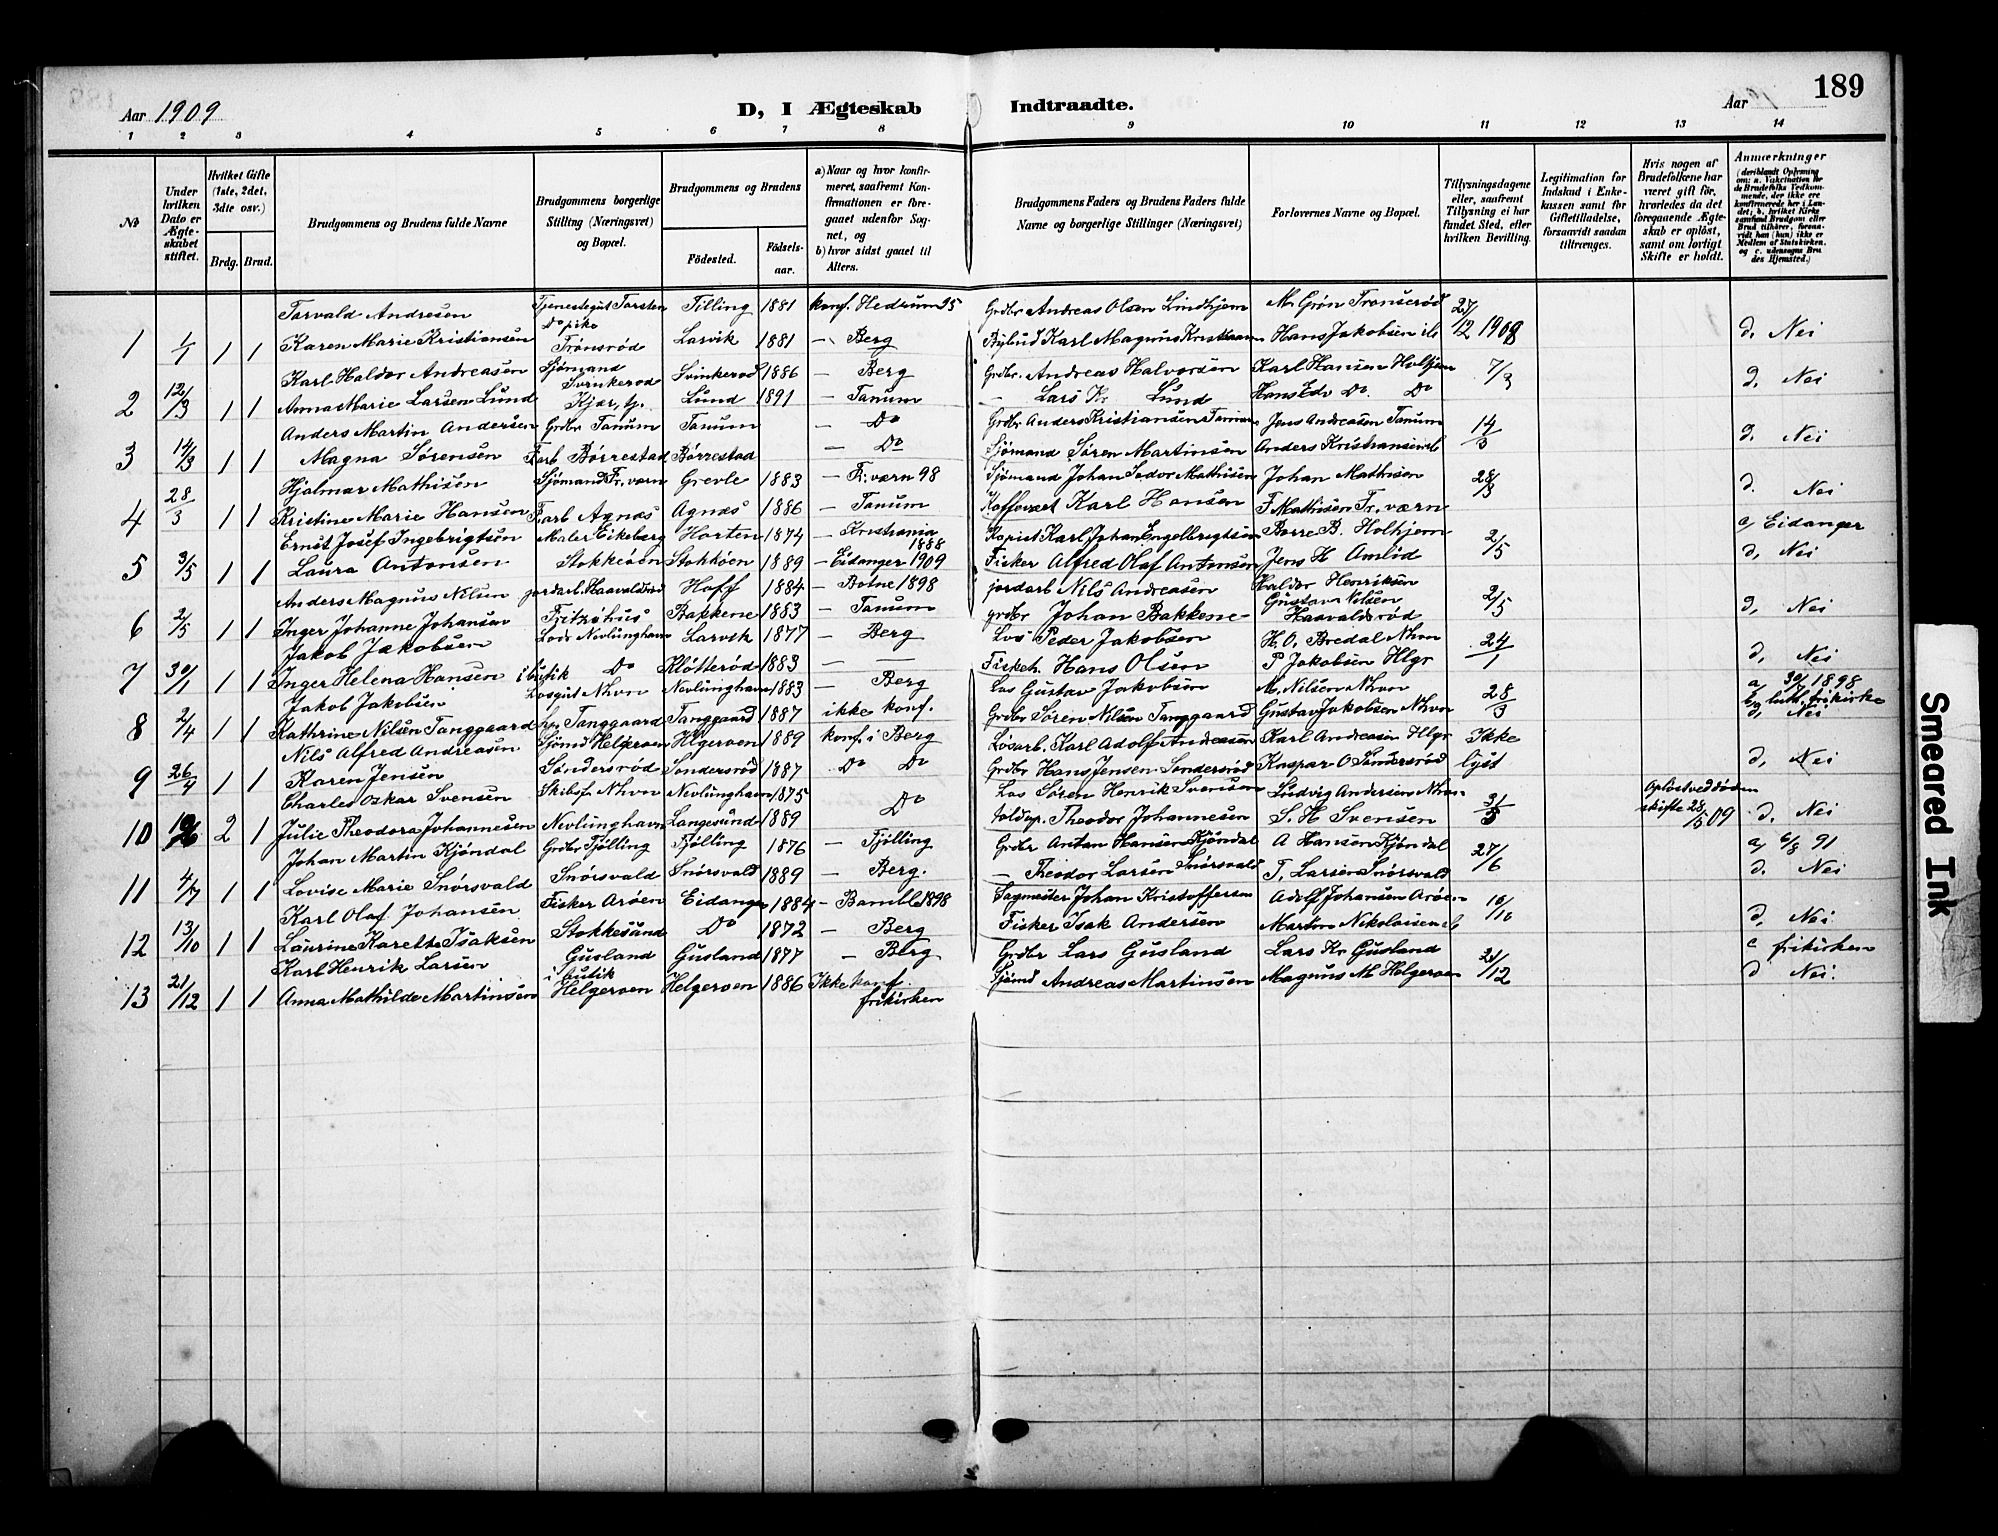 189
Aar 1909
D, I Ægteskab Indtraadte.
Aar 19
1 2 3 4 5 6 7 8 9 10 11 12 13 14
№
Under hvilken Dato er Ægteskabet stiftet.
Hvilket Gifte (1ste, 2det, 3die osv.)
Brdg. Brud.
Brudgommens og Brudens fulde Navne
Brudgommens borgerlige Stilling (Næringsvei) og Bopæl.
Brudgommens og Brudens
Födested. Födselsaar.
a) Naar og hvor konfirmeret, saafremt Konfirmationen er foregaaet udenför Sognet, og
b) hvor sidst gaaet til Alters.
Brudgommens Faders og Brudens Faders fulde Navne og borgerlige Stillinger (Næringsvei)
Forlovernes Navne og Bopæl.
Tillysningsdagene eller, saafremt Tillysning ei har fundet Sted, efter hvilken Bevilling.
Legitimation for Indskud i Enkekassen samt för Giftetilladelse, forsaavidt saadan tiltrænges.
Hvis nogen af Brudefolkene har været gift för, hvorledes da det foregaaende Ægteskab er oplöst, samt om lovligt Skifte er holdt.
Anmærkninger
Torvald Andresen Tjenestegut Torsten Tilling 1881 konf. Hedrum 95 Grdbr Andreas Olsen Lindhjem M. Grøn Tronserød 27/12 1908
1 1/1 1 1 Karen Marie Kristiansen Do pike Trønsrød Larvik 1881 – Berg Bybud Karl Magnus Kristiansen Hans Jakobsen d. Nei
Karl Haldor Andreasen Sjømand Svinkerød Svinkerød 1886 – Berg Grdbr. Andreas Halvorsen Karl Hansen Holtjem 7/3
2 12/3 1 1 Anna Marie Larsen Lund Kjær, tj. Lund 1891 – Tanum – Lars Kr. Lund Hans Edv. Do. Do d. Nei
Anders Martin Andersen Grdbr Tanum Tanum – Do Grdbr Anders Kristiansen Tanum Jens Andreasen Tanum 14/3
3 14/3 1 1 Magna Sørensen Børrestad Børrestad – Do Sjømand Søren Martinsen Anders Kristiansen d. Nei
Hjalmar Mathisen Sjømand Fr. værn Grevle 1883 – Fr. værn 98 Sjømand Johan Sedor Mathisen Johan Mathisen 28/3
4 28/3 1 1 Kristine Marie Hansen Agnæs Agnæs 1886 – Tanum Karl Hansen F. Mathisen Fr. værn d. Nei
Ernst Josef Ingebrigtsen Maler Eikeberg Horten 1874 – Kristiania 1888 Kopist Karl Johan Engelbrigtsen Borre B. Holhjem 2/5 a, Eidanger
5 3/5 1 1 Laura Antonsen Stokkøen Stokkøen 1889 – Eidanger 1909 Fisker Alfred Olaf Antonsen Jens H Amlid d, Nei
Anders Magnus Nilsen jordarb. Haavaldsrød Hoff 1884 – Botne 1898 jordarb Nils Andreasen Haldor Henriksen
6 2/5 1 1 Inger Johanne Johansen Fritzøhus Bakkene 1883 – Tanum grdbr Johan Bakkene Gustav Nilsen Haavaldsrød 2/5 d, Nei
Jakob Jakobsen Lods Nevlunghavn Larvik 1877 – Berg Los Peder Jakobsen H. O. Bredal Nhvn 24/1
7 30/1 1 1 Inger Helena Hansen i butik Do Kløtterød 1883 – Fiskeh. Hans Olsen P Jakobsen Hlgr d, Nei
Jakob Jakobsen Losgut Nhvn Nevlunghavn 1883 – Berg Los Gustav Jakobsen M. Nilsen Nhvn 28/3 a, 30/ 1898
8 2/4 1 1 Kathrine Nilsen Tanggaard Tanggaard Tanggaard 1887 ikke konf. Grdbr Søren Nilsen Tanggaard Gustav Jakobsen Nhvn b, luth. frikirke d, Nei
Nils Alfred Andreasen Sjømd Helgeroen Hlgeroen 1889 konf. i Berg Løsarb. Karl Adolf Andreasen Karl Andreasen Hlgr Ikke lyst
9 26/4 1 1 Karen Jensen Søndersrød Søndersrød 1887 Do Do Grdbr Hans Jensen Søndersrød Kaspar O Søndersrød d, Nei
Charles Oskar Svensen Skibsf. Nhvn Nevlunghavn 1875 Los Søren Henrik Svensen Ludvig Andersen Nhvn 31/5 Opløst ved døden skifte 28/5 09
10 /6 2 1 Julie Theodora Johannesen Nevlunghavn Langesund 1889 Do toldop. Theodor Johannesen S. H Svensen d. Nei
Johan Martin Kjøndal Grdbr Tjølling Tjølling 1876 – Tjølling Grdbr Antan Hansen Kjøndal A Hansen Kjøndal 27/6 a, 6/8 91
11 4/7 1 1 Lovise Marie Snørsvald Snørsvald Snørsvald 1889 – Berg. – Theodor Larsen Snørsvald T. Larsen Snørsvald d. Nei
Karl Olaf Johansen Fisker Arøen Eidanger 1884 – Bamble 1898 Sagmester Johan Kristoffersen Adolf Johansen Arøen 10/10
12 13/10 1 1 Laurine Karette Isaksen Stokkesund Do 1872 – Berg Fisker Isak Andersen Martin Nikolaisen d, Nei
Karl Henrik Larsen Gusland Gusland 1877 – Berg Grdbr Lars Gusland Lars Kr Gusland 21/12 c frikirken
13 21/12 1 1 Anna Mathilde Martinsen i butik Helgeroen Helgeroen 1886 Ikke konf. frikirken Sjømd Andreas Martinsen Magnus M Helgeroen d Nei
Smeared Ink